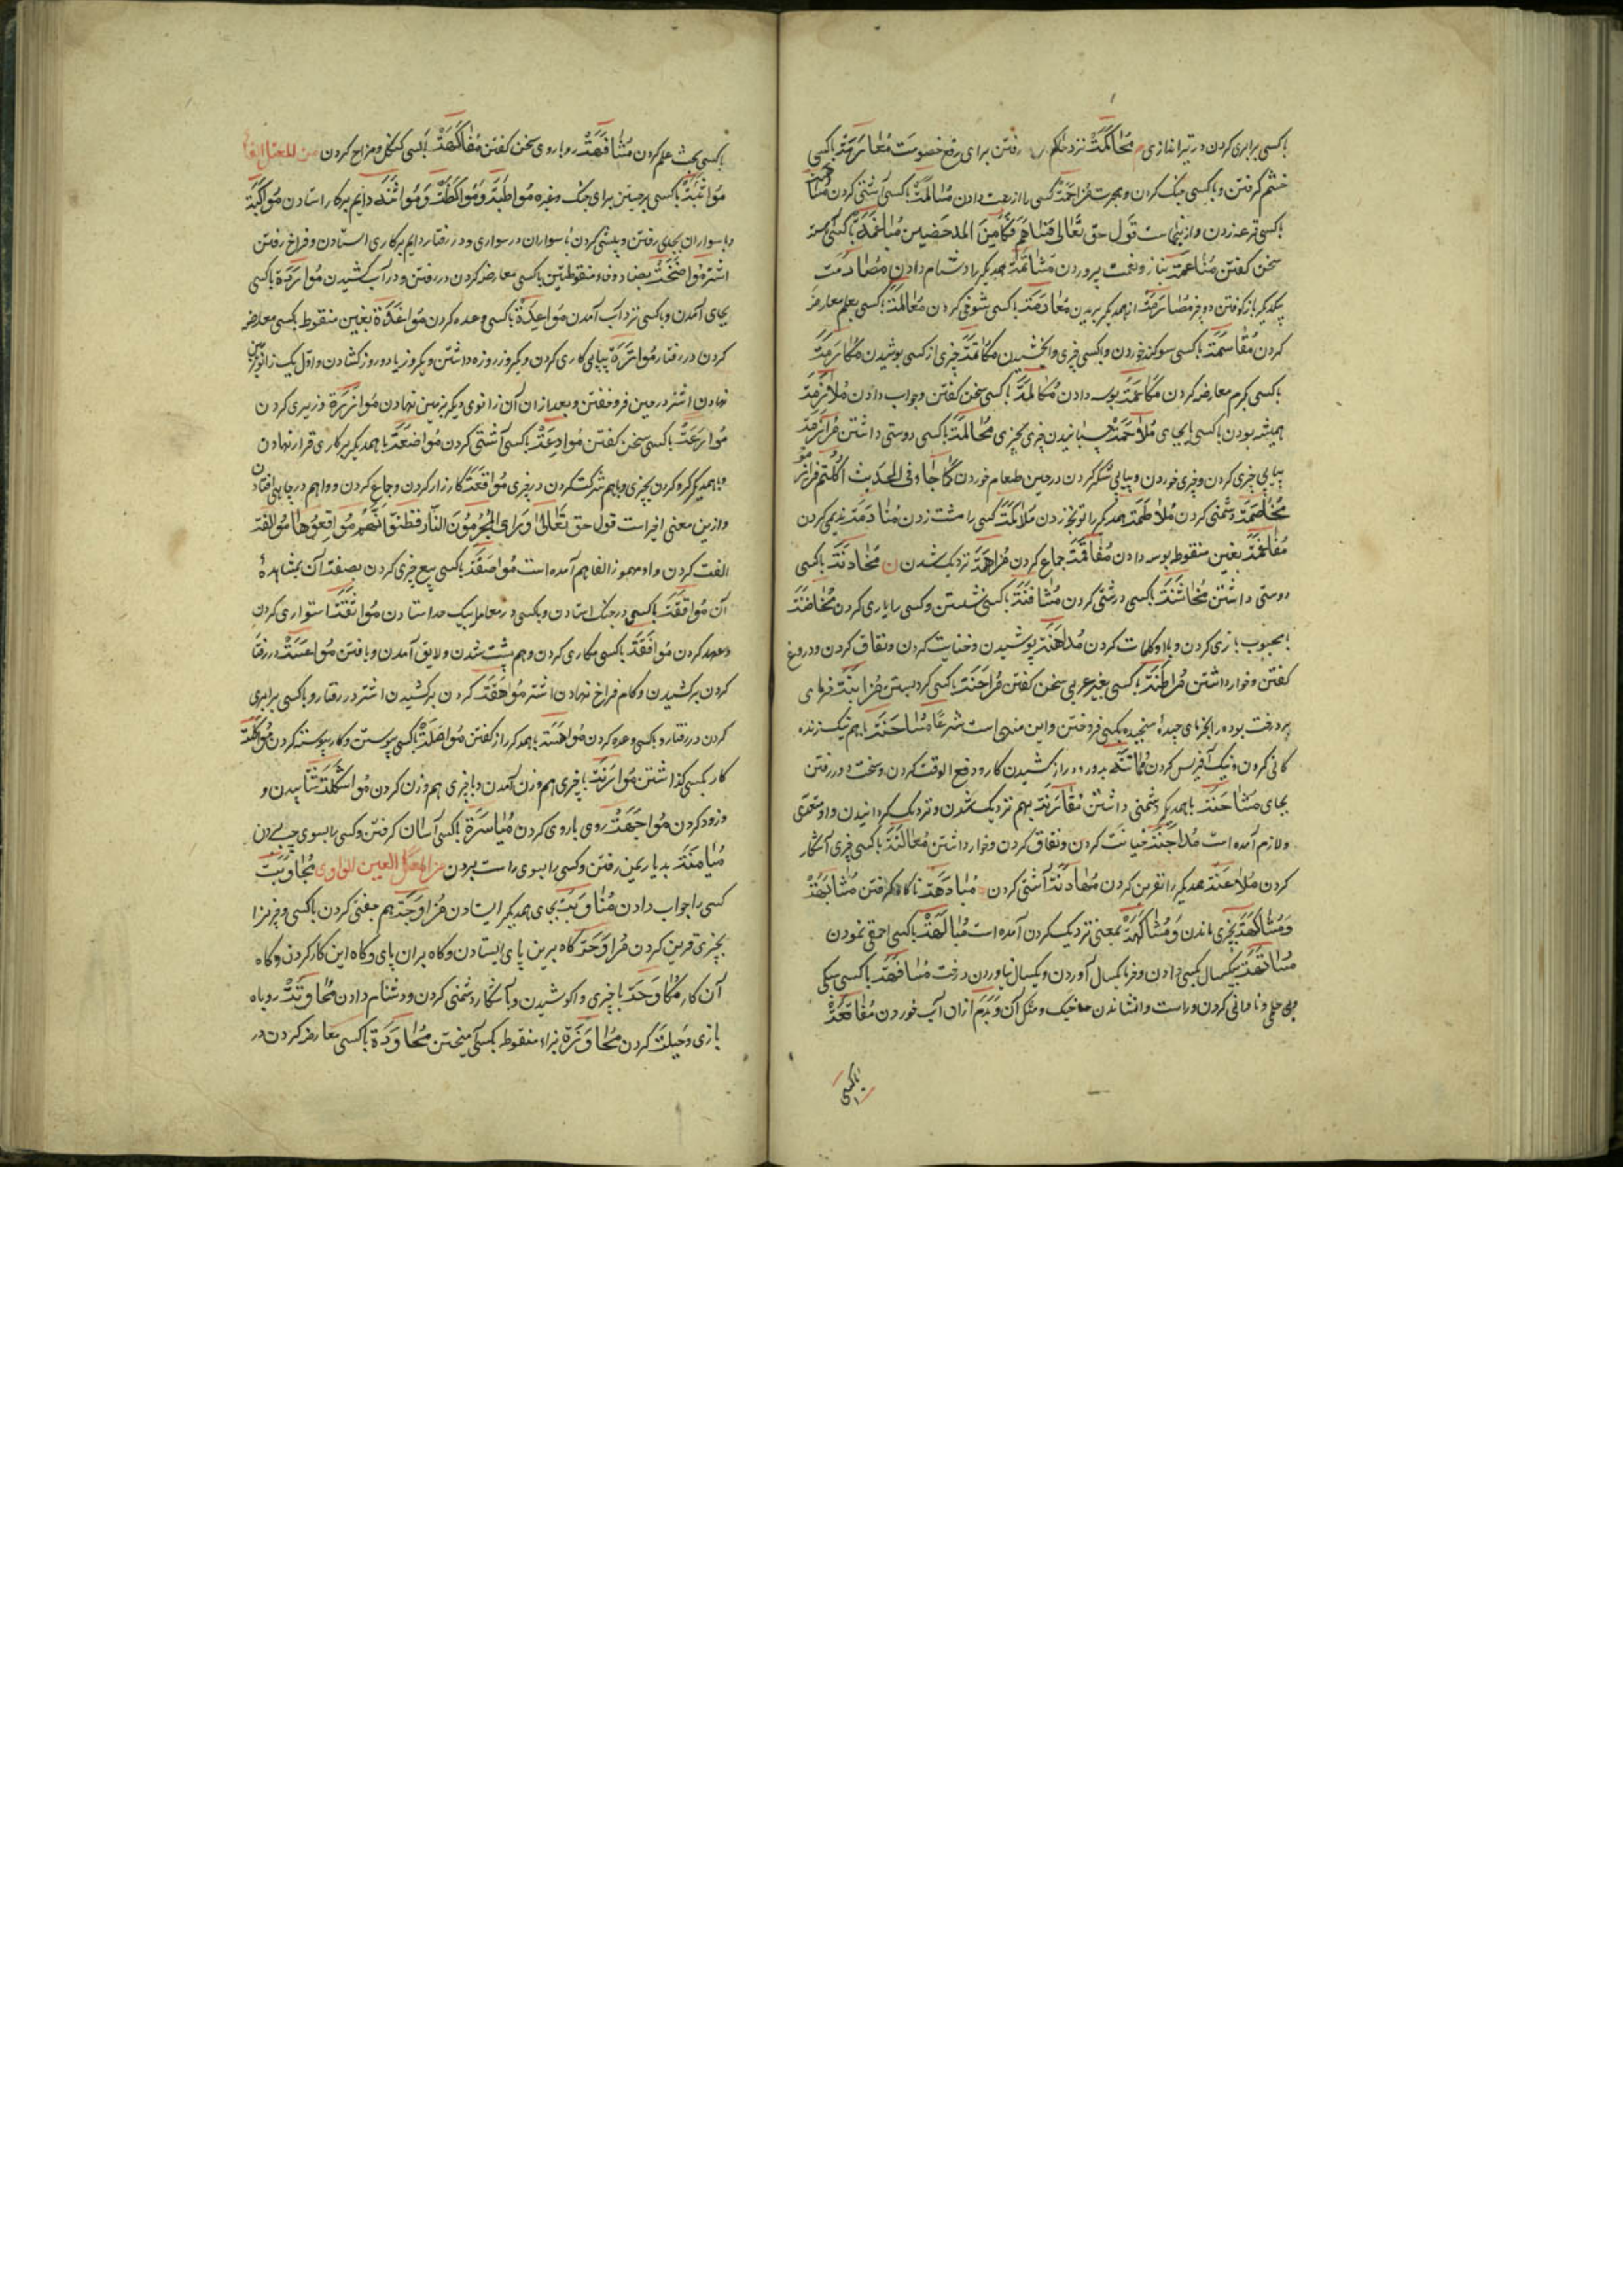 باکسی برابری کردن در تیراندازی م مُحَاکَمَة نزد حاکم رفتن برای رفع خصومت مُعَارَمَة باکسی
خشم گرفتن و باکسی جنک کردن و هجرت مُزَاحَمَة کسی را زحمت دادن مُسَالَمَة باکسی آشتی کردن مُسَاهَمَة
باکسی قرعه زدن و ازینجاست قول حق تعالی فَسَاهَمَ فَکَانَ مِنَ المدحَضین مُبَاغَمَة باکسی آهسته
سخن کفتن مُنَاعَمَة بناز و نعمت پروردن مُشَاتَمَة همدیکر را دشنام دادن مُصَادَمَت
یکدیکر باز کوفتن دو چیز مُصَارَمَة از همدیکر بریدن مُعَادَمَة باکسی شوخی کردن مُعَالَمَة باکسی بعلم معارضه
کردن مُقَاسَمَة باکسی سوکند خوردن و باکسی چیزی وابخشیدن مُکَاتَمَة چیزی از کسی پوشیدن مُکَارَمَة
باکسی بکرم معارضه کردن مُکَاعَمَة بوسه دادن مُکَالَمَة باکسی سخن کفتن و جواب دادن مُلَازَمَة
همیشه بودن باکسی یا بجای مُلَاحَمَة چسپانیدن چیزی بچیزی مُحَالَمَة باکسی دوستی داشتن مُرَازَمَة
پیاپی چیزی کردن و چیزی خوردن و پیاپی شکر کردن در حین طعام خوردن کَمَا جَاءَ فی الحَدیث اکَلتُم فرازموا
مُخَاصَمَة دشمنی کردن مُلَاطَمَة همدیکر را توپخه زدن مُلَاکَمَة کسی را مشت زدن مُنَادَمَة ندیمی کردن
مُفَاغَمَة بغین منقوطه بوسه دادن مُفَاقَمَة جماع کردن مُزَاهَمَة نزدیک شدن ن مُخَادَنَة باکسی
دوستی داشتن مُخَاشَنَة باکسی درشتی کردن مُثَافَنَة باکسی نشستن و کسی را یاری کردن مُخَاضَنَة
بمحبوب بازی کردن و با او کلمات کردن مُدَاهَنَة پوشیدن و خیانت کردن و نفاق کردن و دروغ
کفتن و خوار داشتن مُرَاطَنَة باکسی بغیر عربی سخن کفتن مُرَاهَنَة باکسی کرو بستن مُزَابَنَة خرمای
بر درخت بوده را بخرمای چیده سنجیده بکسی فروختن و این منهی است شرعًا مُسَاحَنَة باهم نیک زنده
کانی کردن و نیک آفرینش کردن مُمَاتَنَة بدور و دراز کشیدن کار و دفع الوقت کردن و سخت دور رفتن
بجای مُشَاحَنَة باهمدیکر دشمنی داشتن مُقَارَنَة بهم نزدیک شدن و نزدیک کردانیدن و او متعدی
و لازم آمده است مُدَاجَنَة خیانت کردن و نفاق کردن و خوار داشتن مُعَالَنَة باکسی چیزی آشکار
کردن مُلَاعَنَة همدیکر را نفرین کردن مُهَادَنَة آشتی کردن ه مُبَادَهَة ناکاه کرفتن مُشَابَهَة
وَ مُشَاکَهَة بچیزی ماندن و مُشَاکَهَة بمعنی نزدیک کردن آمده است مُبَالَهَة باکسی احمقی نمودن
مُسَانَهَة بیکسال بکسی دادن و خرما یکسال آوردن و یکسال نیاوردن درخت مُسَافَهَة باکسی سبکی
و بی حلمی و نادانی کردن و راست وانشاندن خیک و مثل آن و بدم ازان آب خوردن مُفَاقَهَة
باکسی
باکسی بحث علم کردن مُشَافَهَة روباروی سخن کفتن مُفَاکَهَة باکسی کنکل و مزاح کردن من المعتل الفا
مُوَاثَبَة باکسی برجستن برای جنک و غیره مُوَاظَبَة وَ مُوَاکَظَة وَ مُوَاثَنَة دایم بر کار استادن مُوَاکَبَة
با سواران بجدی رفتن و پیشی کردن با سواران در سواری و در رفتار دایم بر کاری استادن و فراخ رفتن
اشتر مُوَاضَخَة بضاد و خاء منقوطتین باکسی معارضه کردن در رفتن و در آب کشیدن مُوَارَدَة باکسی
بجای آمدن و باکسی نزد آب آمدن مُوَاعِدَة باکسی وعده کردن مُوَاغَدَة بغین منقوط باکسی معارضه
کردن در رفتار مُوَاتَرَة پیاپی کاری کردن و یکروز روزه داشتن و یکروز یا دو روز کشادن و اول یک زانو بزمین
نهادن اشتر در حین فروخفتن و بعد ازان آن زانوی دیکر بزمین نهادن مُوَازَرَة وزیری کردن
مُوَارَعَة باکسی سخن کفتن مُوَادعَة باکسی آشتی کردن مُوَاضَعَة باهمدیکر بر کاری قرار نهادن
و باهمدیکر کرو کردن بچیزی و باهم شرکت کردن در چیزی مُوَاقَعَة کارزار کردن و جماع کردن و وا هم در جایی افتادن
و ازین معنی اخیر است قول حق تعالی وَ رَای المُجرِمُونَ النَّارَ فَظَنُّوا اَنَّهُم مُوَاقِعُوهَا مُوَالَفَة
الفت کردن و او مهموز الفا هم آمده است مُوَاصَفَة باکسی بیع چیزی کردن بصفت آن بمشاهدهٔ
آن مُوَاقَفَة باکسی در جنک استادن و باکسی در معامله بیک حد استادن مُوَاثَقَة استواری کردن
و عهد کردن مُوَافَقَة باکسی همکاری کردن و هم پشت شدن و لایق آمدن و یافتن مُوَاعَسَة در رفتار
کردن برکشیدن و کام فراخ نهادن اشتر مُوَاهَقَة کردن برکشیدن اشتر در رفتار و باکسی برابری
کردن در رفتار و باکسی وعده کردن مُوَاهَسَة باهمدیکر راز کفتن مُوَاصَلَة باکسی پیوستن و کار پیوسته کردن مُوَاکَلَة
کار بکسی کذاشتن مُوَازَنَة باچیزی هم وزن آمدن و باچیزی هم وزن کردن مُوَاشَکَة شتابیدن و
و زود کردن مُوَاجَهَة روی باروی کردن مُیَاسَرَة باکسی آسان کرفتن و کسی را بسوی چپ بردن
مُیَامَنَة بدیار یمن رفتن و کسی را بسوی راست بردن من المعتل العین الواوی مُجَاوَبَت
کسی را جواب دادن مُنَاوَبَة بجای همدیکر ایستادن مُزَاوَجَة هم جفتی کردن باکسی و چیزی را
بچیزی قرین کردن مُرَاوَحَة کاه برین پای ایستادن و کاه بران پای و کاه این کار کردن و کاه
آن کار مُکَاوَحَة باچیزی واکوشیدن و باآشکارا دشمنی کردن و دشنام دادن مُحَاوَتَة روباه
بازی و حیلت کردن مُحَاوَزَة بزاء منقوطه بکسی آمیختن مُحَاوَدَة باکسی معارضه کردن در